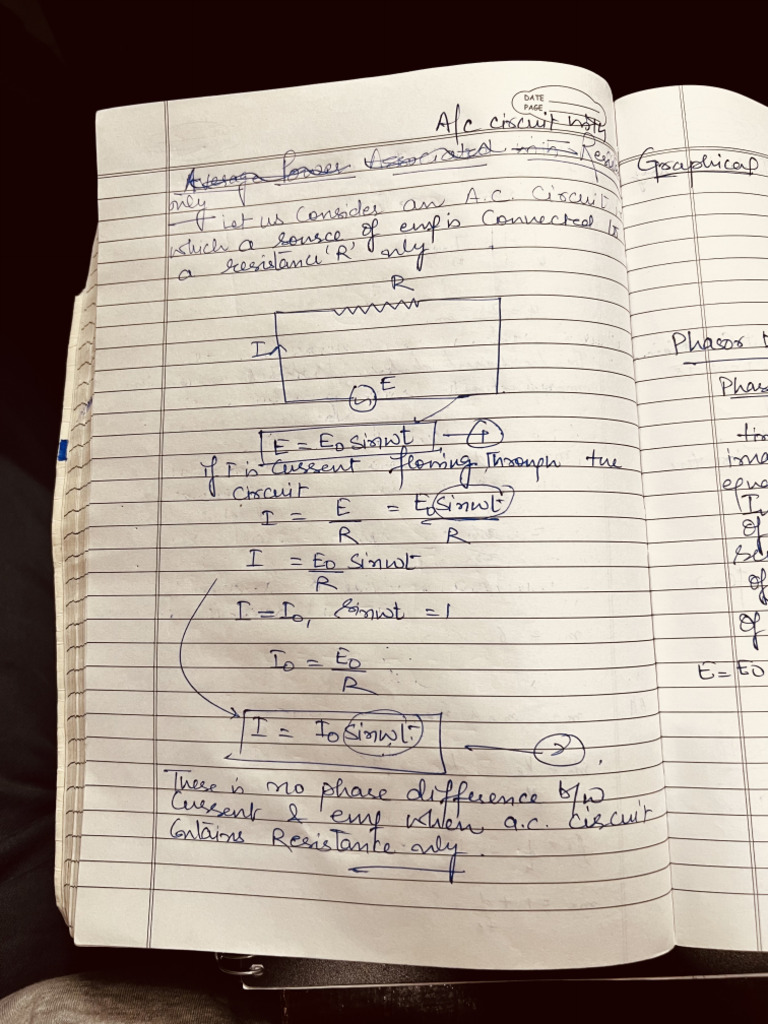 DATE
PAGE
A/c circuit with
Average Power Associated with Resis
only
Let us Consider an A.C. Circuit
which a source of emf is Connected to
a resistance 'R' only
R
I
E
E = E₀ sinwt — 1
if I is Current flowing Through the
circuit
I = E/R = E₀ sinwt/R
I = E₀/R sinwt
I = I₀, sinwt = 1
I₀ = E₀/R
I = I₀ sinwt → 2
There is no phase difference b/w
Current & emf when a.c. circuit
Contains Resistance only.
Graphical
Phasor
Phas
equa
of
of
of
E = E₀